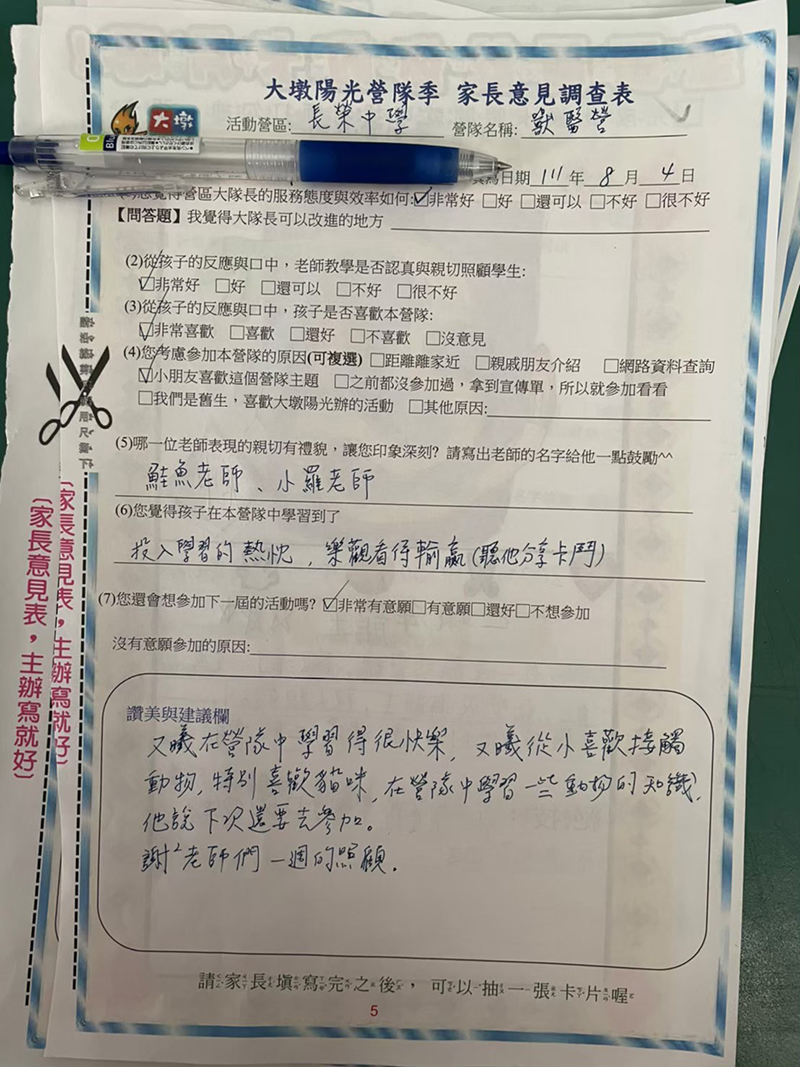 大墩陽光營隊季 家長意見調查表
大墩
活動營區: 長榮中學 營隊名稱: 獸醫營
填寫日期 111 年 8 月 4 日
您覺得營區大隊長的服務態度與效率如何:☑非常好 □好 □還可以 □不好 □很不好
【問答題】我覺得大隊長可以改進的地方
(2)從孩子的反應與口中，老師教學是否認真與親切照顧學生:
☑非常好 □好 □還可以 □不好 □很不好
(3)從孩子的反應與口中，孩子是否喜歡本營隊:
☑非常喜歡 □喜歡 □還好 □不喜歡 □沒意見
(4)您考慮參加本營隊的原因(可複選) □距離離家近 □親戚朋友介紹 □網路資料查詢
☑小朋友喜歡這個營隊主題 □之前都沒參加過，拿到宣傳單，所以就參加看看
□我們是舊生，喜歡大墩陽光辦的活動 □其他原因:
(5)哪一位老師表現的親切有禮貌，讓您印象深刻? 請寫出老師的名字給他一點鼓勵^^
鮭魚老師、小羅老師
(6)您覺得孩子在本營隊中學習到了
投入學習的熱忱，樂觀看待輸贏(聽他分享卡鬥)
(7)您還會想參加下一屆的活動嗎? ☑非常有意願□有意願□還好□不想參加
沒有意願參加的原因:
讚美與建議欄
又曦在營隊中學習得很快樂，又曦從小喜歡接觸
動物，特別喜歡貓咪，在營隊中學習一些動物的知識，
他說下次還要去參加。
謝²老師們一週的照顧.
請家長填寫完之後，可以抽一張卡片喔
5
(家長意見表，主辦寫就好)
(家長意見表，主辦寫就好)